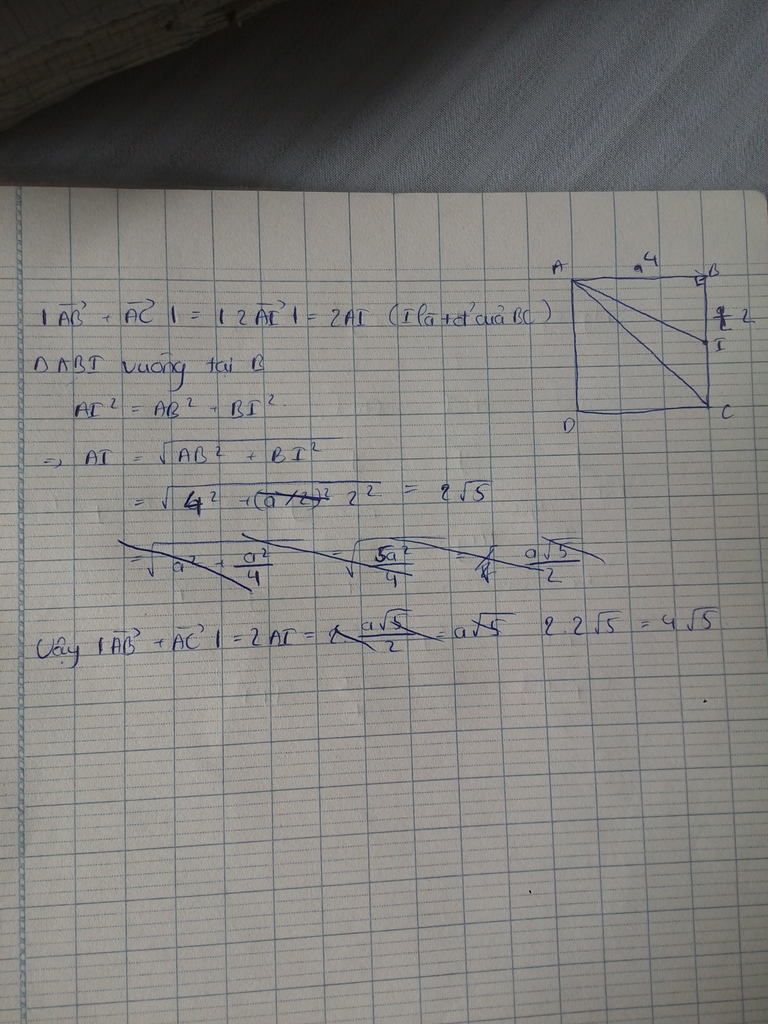 |AB⃗ + AC⃗| = |2AI⃗| = 2AI (I là tđ của BC)
Δ ABI vuông tại B
AI² = AB² + BI²
=> AI = √(AB² + BI²)
= √(4² + (a/2)² 2²) = 2√5
= √(a² + a²/4) = √(5a²/4) = a√5/2
Vậy |AB⃗ + AC⃗| = 2AI = 2 a√5/2 = a√5 2.2√5 = 4√5
A
a 4
B
2
I
D
C